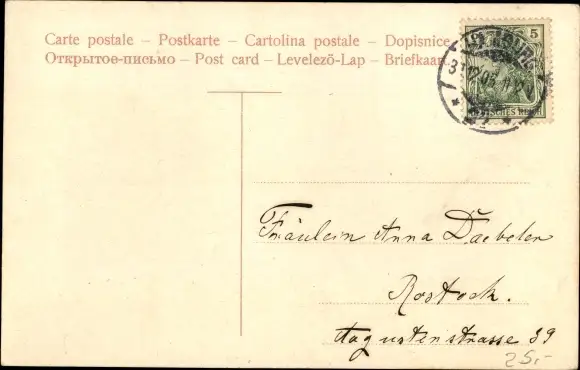 Carte postale – Postkarte – Cartolina postale – Dopisnice
Открытое-письмо – Post card – Levelező-Lap – Briefkaart
5
DEUTSCHES REICH
Fräulein Anna Daebeler
Rostock.
Augustenstrasse 39
25,-